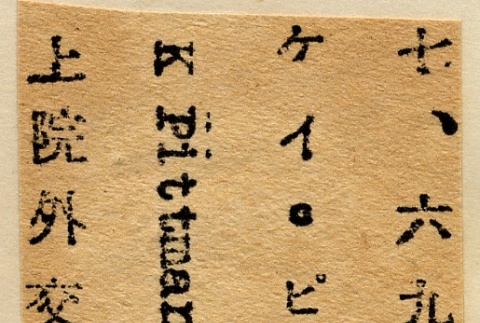 七、六九
ケイ。ピ
K Pittman
上院外交